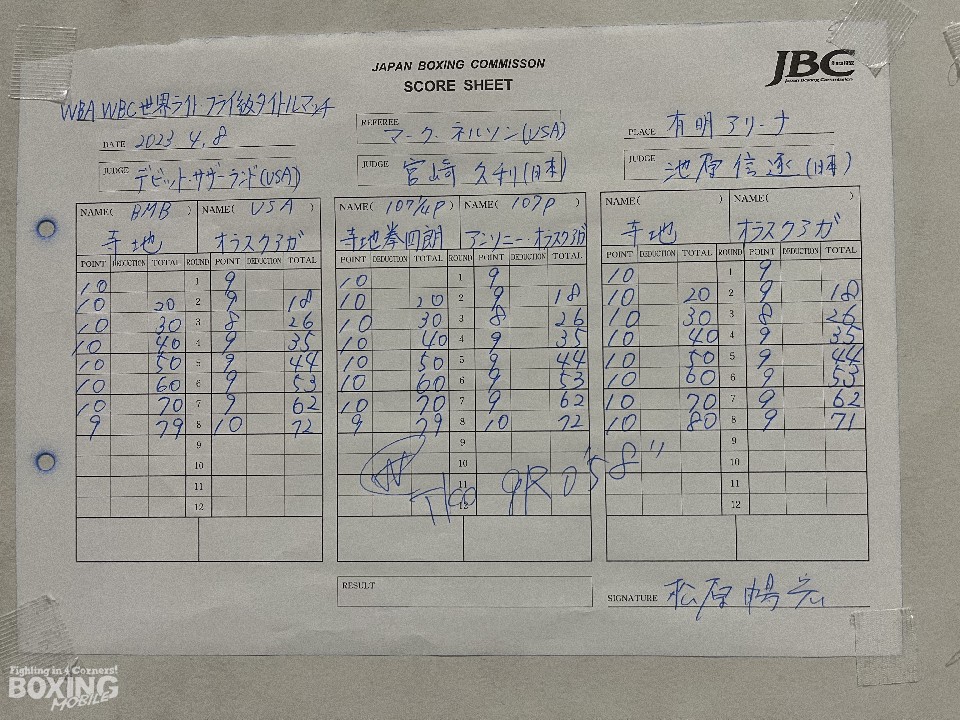 JAPAN BOXING COMMISSON
SCORE SHEET
JBC
Since 1952
Japan Boxing Commission
WBA WBC世界ライトフライ級タイトルマッチ
DATE 2023 4.8
REFEREE マーク・ネルソン(USA)
PLACE 有明アリーナ
JUDGE デビット・サザーランド(USA)
JUDGE 宮崎久利(日本)
JUDGE 池原信遂(日本)
NAME( BMB ) NAME( USA ) NAME( 107 1/4P ) NAME( 107P ) NAME( ) NAME( )
寺地 オラスクアガ 寺地拳四朗 アンソニー・オラスクアガ 寺地 オラスクアガ
POINT DEDUCTION TOTAL ROUND POINT DEDUCTION TOTAL POINT DEDUCTION TOTAL ROUND POINT DEDUCTION TOTAL POINT DEDUCTION TOTAL ROUND POINT DEDUCTION TOTAL
10 1 9 10 1 9 10 1 9
10 20 2 9 18 10 20 2 9 18 10 20 2 9 18
10 30 3 8 26 10 30 3 8 26 10 30 3 8 26
10 40 4 9 35 10 40 4 9 35 10 40 4 9 35
10 50 5 9 44 10 50 5 9 44 10 50 5 9 44
10 60 6 9 53 10 60 6 9 53 10 60 6 9 53
10 70 7 9 62 10 70 7 9 62 10 70 7 9 62
9 79 8 10 72 9 79 8 10 72 10 80 8 9 71
9 9 9
10 10 10
11 11 11
12 12 12
9R 0'58"
RESULT
SIGNATURE 松原暢宏
Fighting in 4 Corners!
BOXING
MOBILE